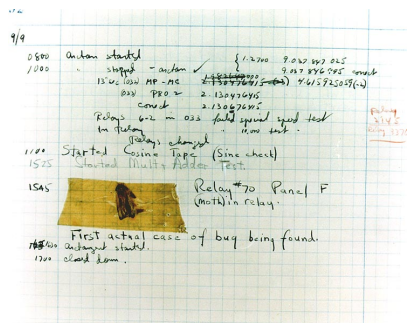 9/9
0800 Antan started
1000 " stopped - antan ✓ { 1.2700 9.037 847 025
9.037 846 995 correct
13"uc (032) MP - MC 2.130476415 4.615925059(-2)
(033) PRO 2 2.130476415
correct 2.130676415
Relays 6-2 in 033 failed special speed test
in Relay " 10.000 test .
Relays changed
1100 Started Cosine Tape (Sine check)
1525 Started Mult + Adder Test.
1545 Relay #70 Panel F
(moth) in relay.
First actual case of bug being found.
antangent started.
1700 closed down .
Relay